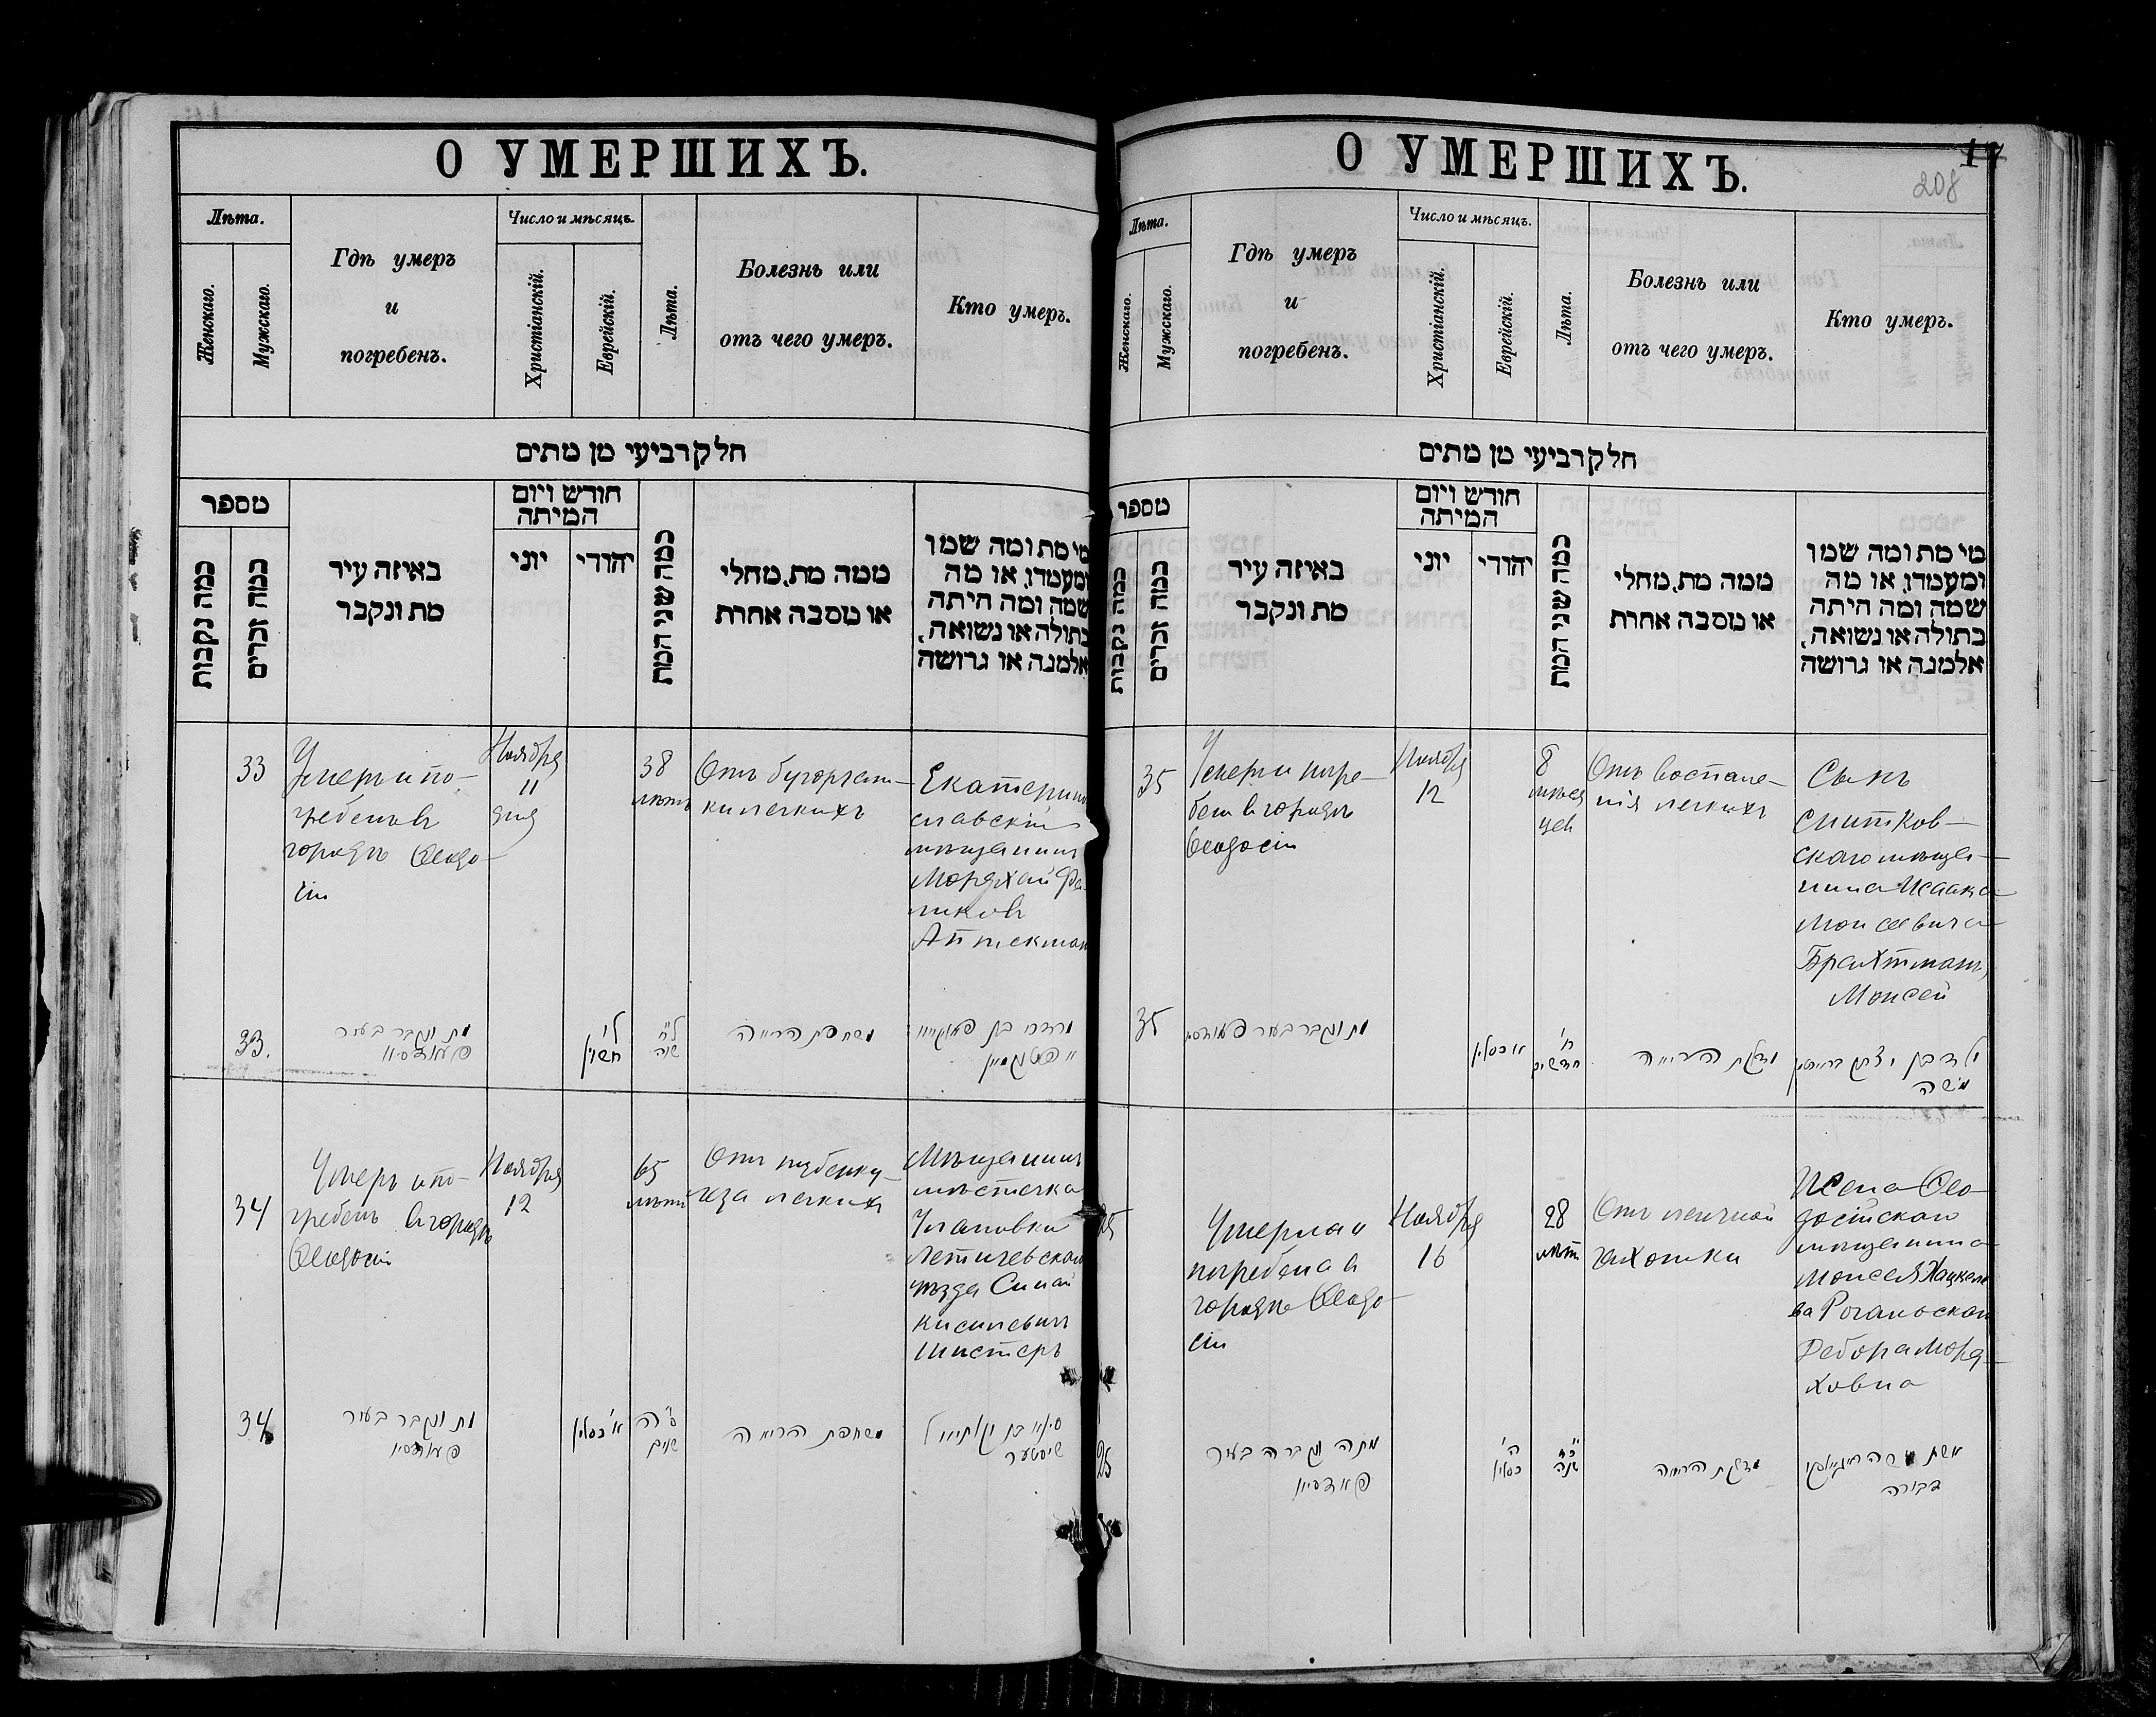 О УМЕРШИХЪ.
Лѣта.
Женскаго.
Мужскаго.
Гдѣ умеръ
и
погребенъ.
Число и мѣсяцъ.
Христіанскій.
Еврейскій.
Лѣта.
Болезнь или
отъ чего умеръ.
Кто умеръ.
חלק רביעי מן מתים
מספר
כמה נקבות
כמה זכרים
באיזה עיר
מת ונקבר
חודש ויום
המיתה
יוני
יהודי
כמה שני המת
ממה מת, מחלי
או מסבה אחרת
מי מת ומה שמו
ומעמדו, או מה
שמה ומה היתה
בתולה או נשואה,
אלמנה או גרושה
33
Умеръ и по-
гребенъ въ
городѣ Ѳеодо-
сіи
Ноября
11
дня
38
лѣтъ
Отъ бугорчат-
ки легкихъ
Екатерино
славскій
мѣщанинъ
Мордхай
Аптекман
33.
מת ונקבר בעיר
פעאדסיע
ל׳
חשון
ל״ח
שנה
משחפת הריאה
מרדכי בן
34
Умеръ и по-
гребенъ въ городѣ
Ѳеодосіи
Ноября
12
65
лѣтъ
Отъ туберку-
леза легкихъ
Мѣщанинъ
мѣстечка
Улановки
Летичевскаго
уѣзда Синай
Кисилевичъ
Шистеръ
34
מת ונקבר בעיר
א׳ כסלו
ס״ה
שנים
משחפת הריאה
סיני בן
שיסטער
О УМЕРШИХЪ.
17
208
Лѣта.
Женскаго.
Мужскаго.
Гдѣ умеръ
и
погребенъ.
Число и мѣсяцъ.
Христіанскій.
Еврейскій.
Лѣта.
Болезнь или
отъ чего умеръ.
Кто умеръ.
חלק רביעי מן מתים
מספר
כמה נקבות
כמה זכרים
באיזה עיר
מת ונקבר
חודש ויום
המיתה
יוני
יהודי
כמה שני המת
ממה מת, מחלי
או מסבה אחרת
מי מת ומה שמו
ומעמדו, או מה
שמה ומה היתה
בתולה או נשואה,
אלמנה או גרושה
35
Умеръ и погре-
бенъ въ городѣ
Ѳеодосіи
Ноября
12
8
мѣся
цев
Отъ воспале-
нія легкихъ
Сынъ
Смитков-
скаго мѣща-
нина Исаака
Моисеевича
Брахтманъ,
Моисей
35
מת ונקבר בעיר
א כסלו
ח׳
חדשים
מדלקת הריאה
ילד בן יצחק
משה
25
Умерла и
погребена въ
городѣ Ѳеодо-
сіи
Ноября
16
28
лѣтъ
Отъ легочной
чахотки
Жена Ѳео-
досійскаго
мѣщанина
Моисея Хацкеле
ва
Дебора Морд-
ховна
25
מתה ונקברה בעיר
ה׳
כסלו
כ״ח
שנה
מדלקת הריאה
אשת משה
דבורה